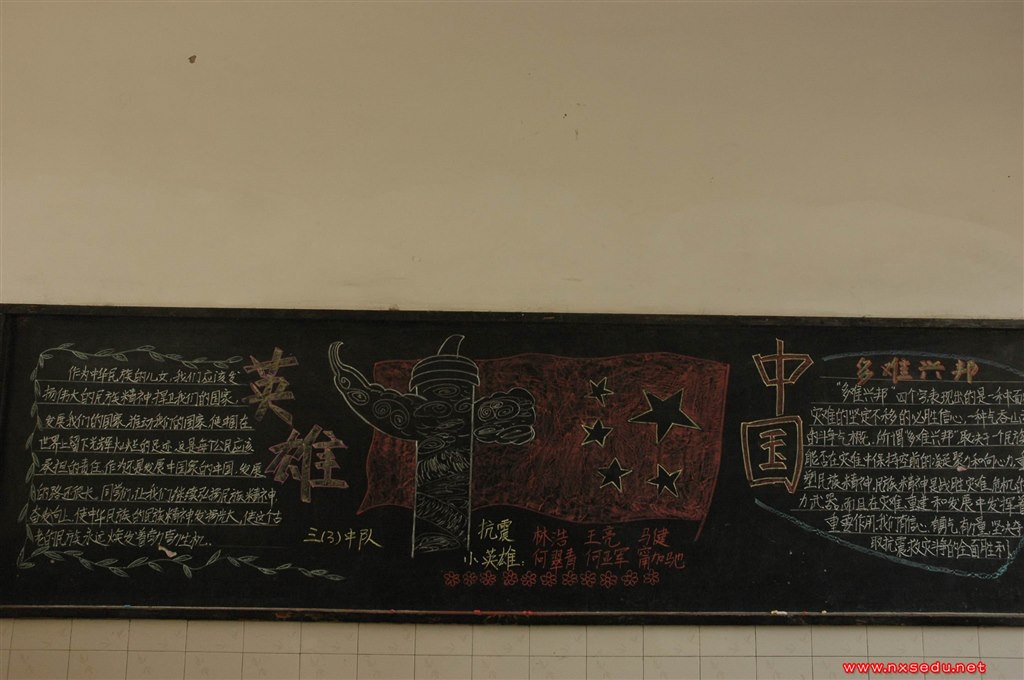 英雄
作为中华民族的儿女,我们应该发
扬伟大的民族精神,捍卫我们的国家
发展我们的国家,推动我们的国家,使祖国在
世界上留下光辉灿烂的足迹,这是每个公民应该
承担的责任。作为还是发展中国家的中国,发展
的路还很长,同学们,让我们继续弘扬民族精神,
奋发向上,使中华民族的民族精神发扬光大,使这古
老的民族永远焕发着勃勃生机…
三(3)中队
抗震
小英雄:
林浩 王亮 马健
何翠青 何亚军 甯加驰
中国
多难兴邦
"多难兴邦"四个字表现出的是一种面
灾难的坚定不移的必胜信心,一种气吞山
的斗争气概。所谓"多难兴邦"取决于个民族
能否在灾难中保持空前的凝聚力和向心力,重
塑民族精神。民族精神是战胜灾难危机的
力武器,而且在灾难重建和发展中发挥着
重要作用,我们信心
取抗震救灾斗争的全面胜利
www.nxsedu.net